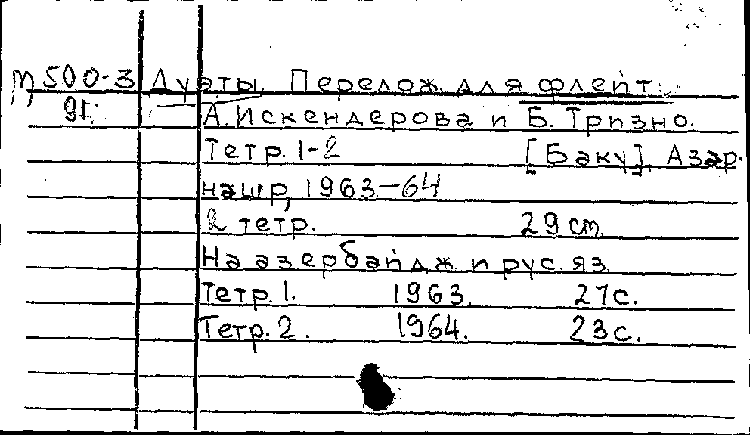 М 500-3 Дуэты. Перелож. для флейт.
91. А. Искендерова и Б. Тризно.
Тетр. 1-2 [Баку], Азер-
нашр, 1963-64
2 тетр. 29 cm.
На азербайдж. и рус. яз.
Тетр. 1. 1963. 27 с.
Тетр. 2. 1964. 23 с.